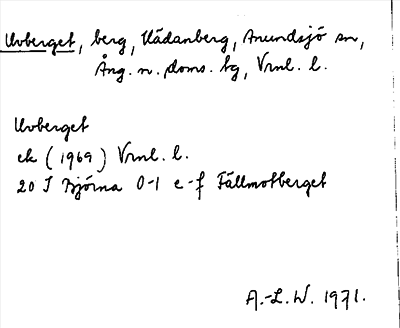 Uvberget, berg, Nådanberg, Anundsjö sn,
Ång. n. doms. hg, Vrnl. l.
Uvberget
ek (1969) Vrnl. l.
20 I Björna 0-1 e-f Fällmotberget
A.-L. W. 1971.